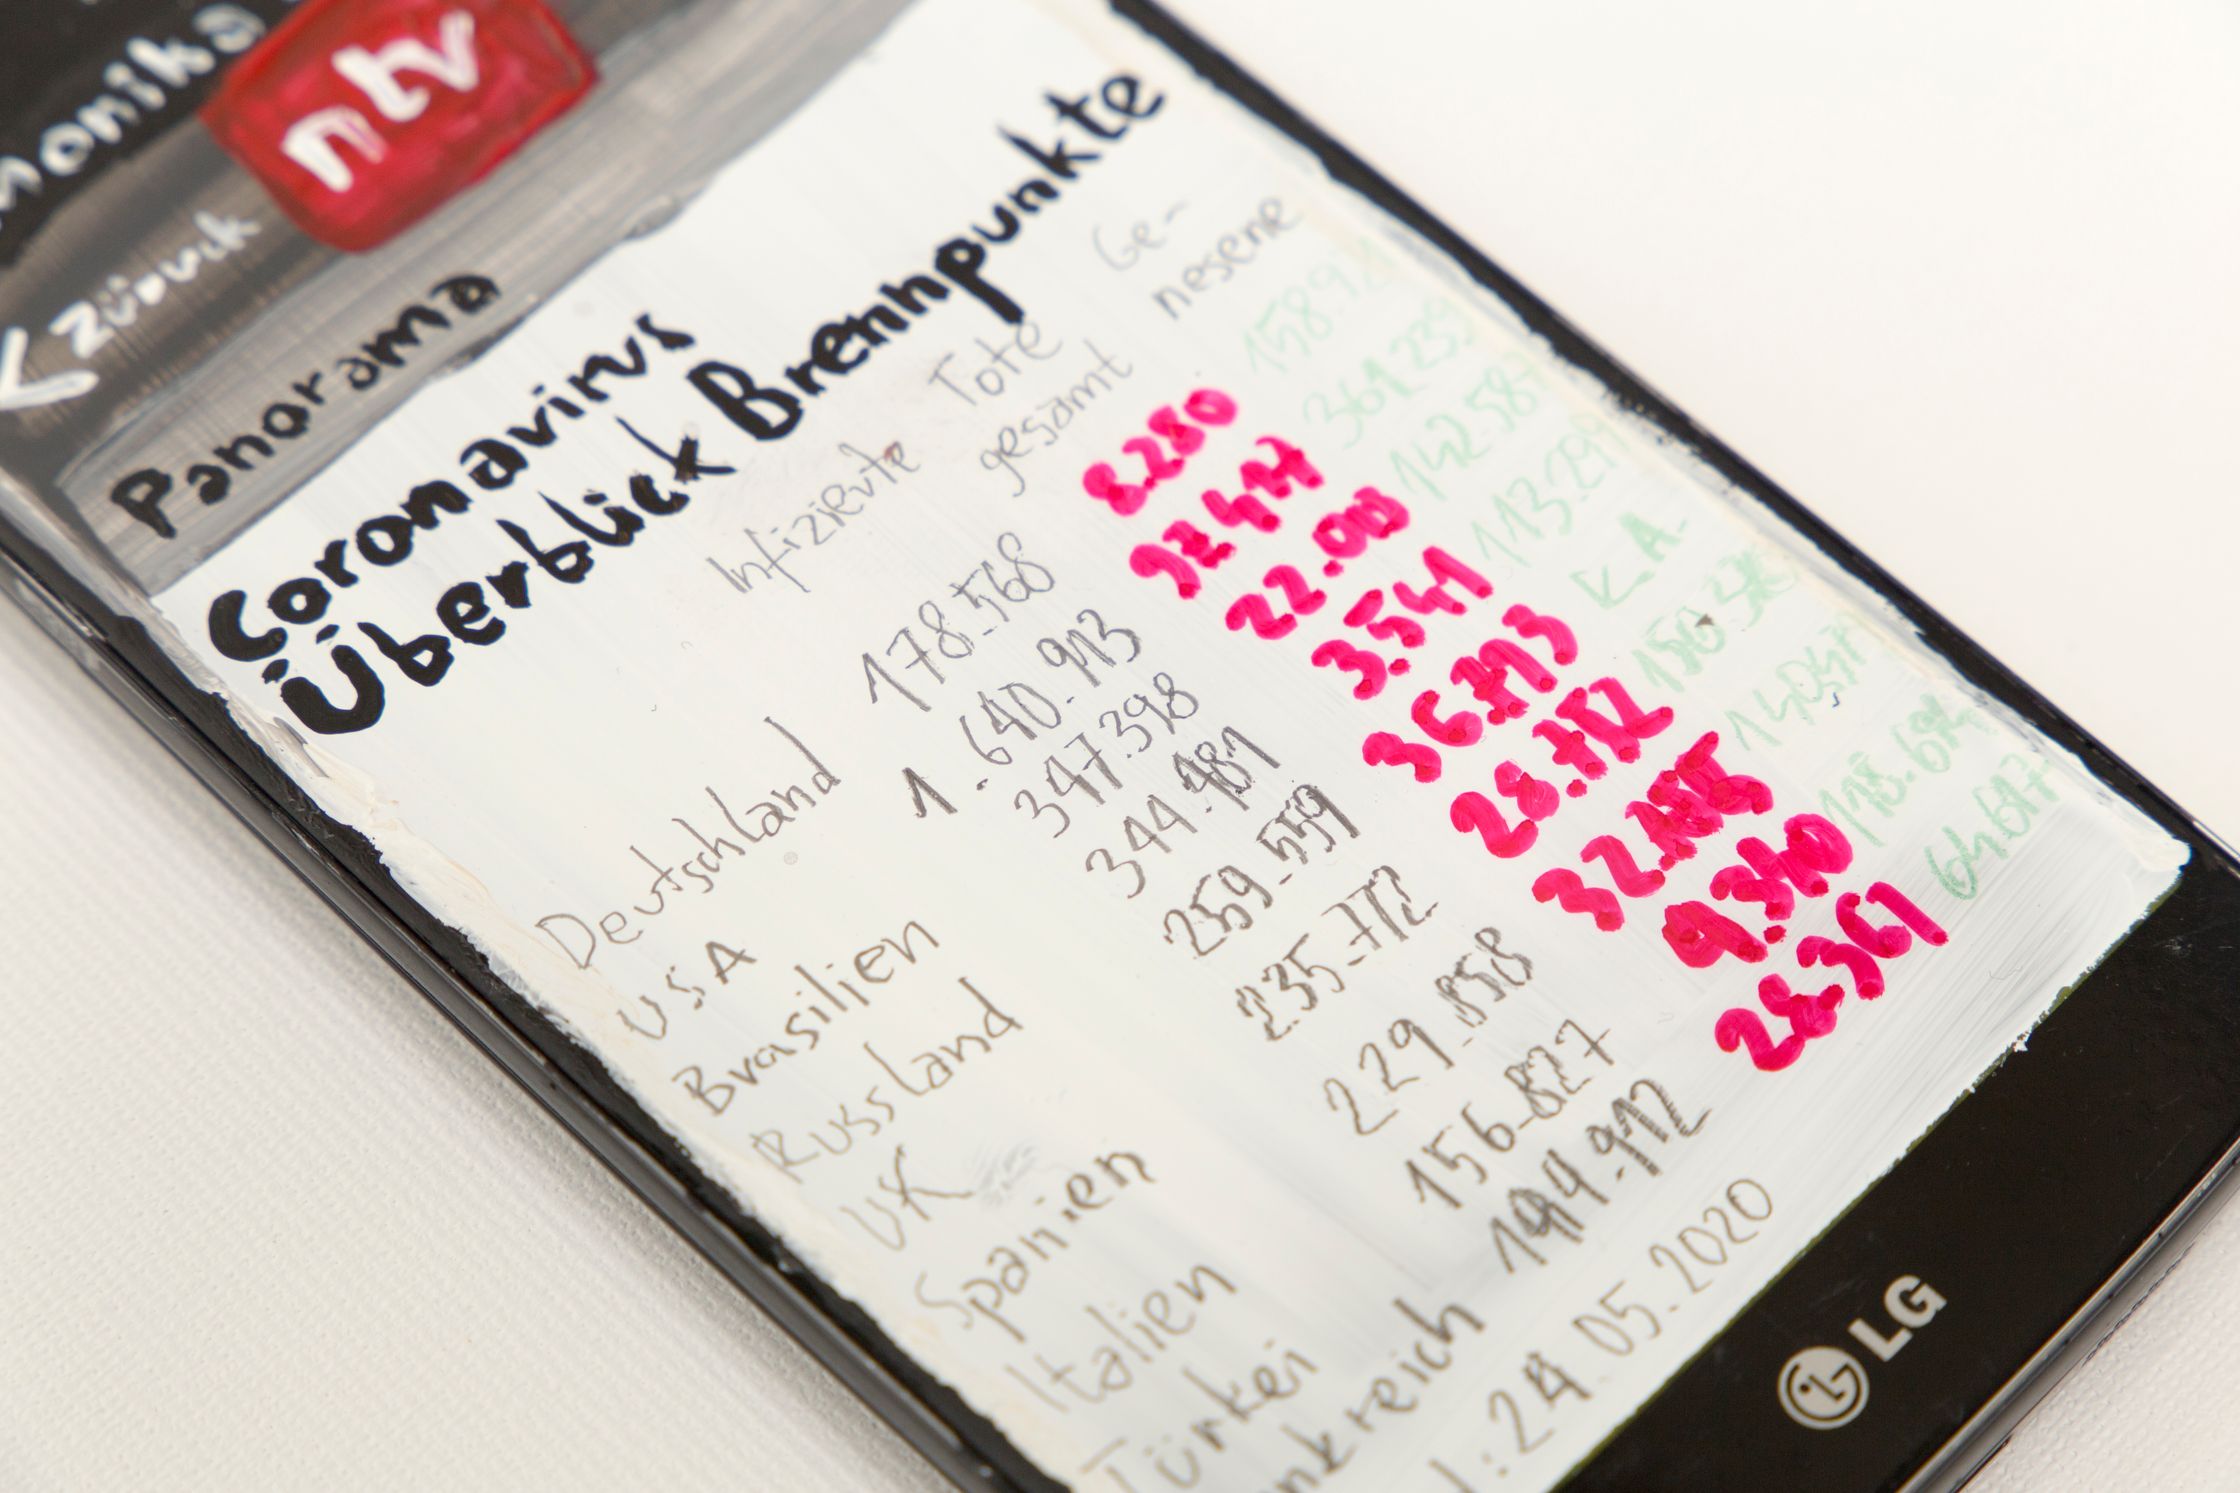 ntv
< zürück
Panorama
Coronavirus
Überblick Brennpunkte
Infizierte Tote gesamt Ge-nesene
Deutschland 178.568 8.280
USA 1.640.913
Brasilien 347.398 22.003
Russland 344.481 3.541 113.299
UK 259.559 36.793 K.A.
Spanien 235.772 28.752
Italien 229.858
Türkei 156.827 4.340
194.912 28.367 64.617
24.05.2020
LG